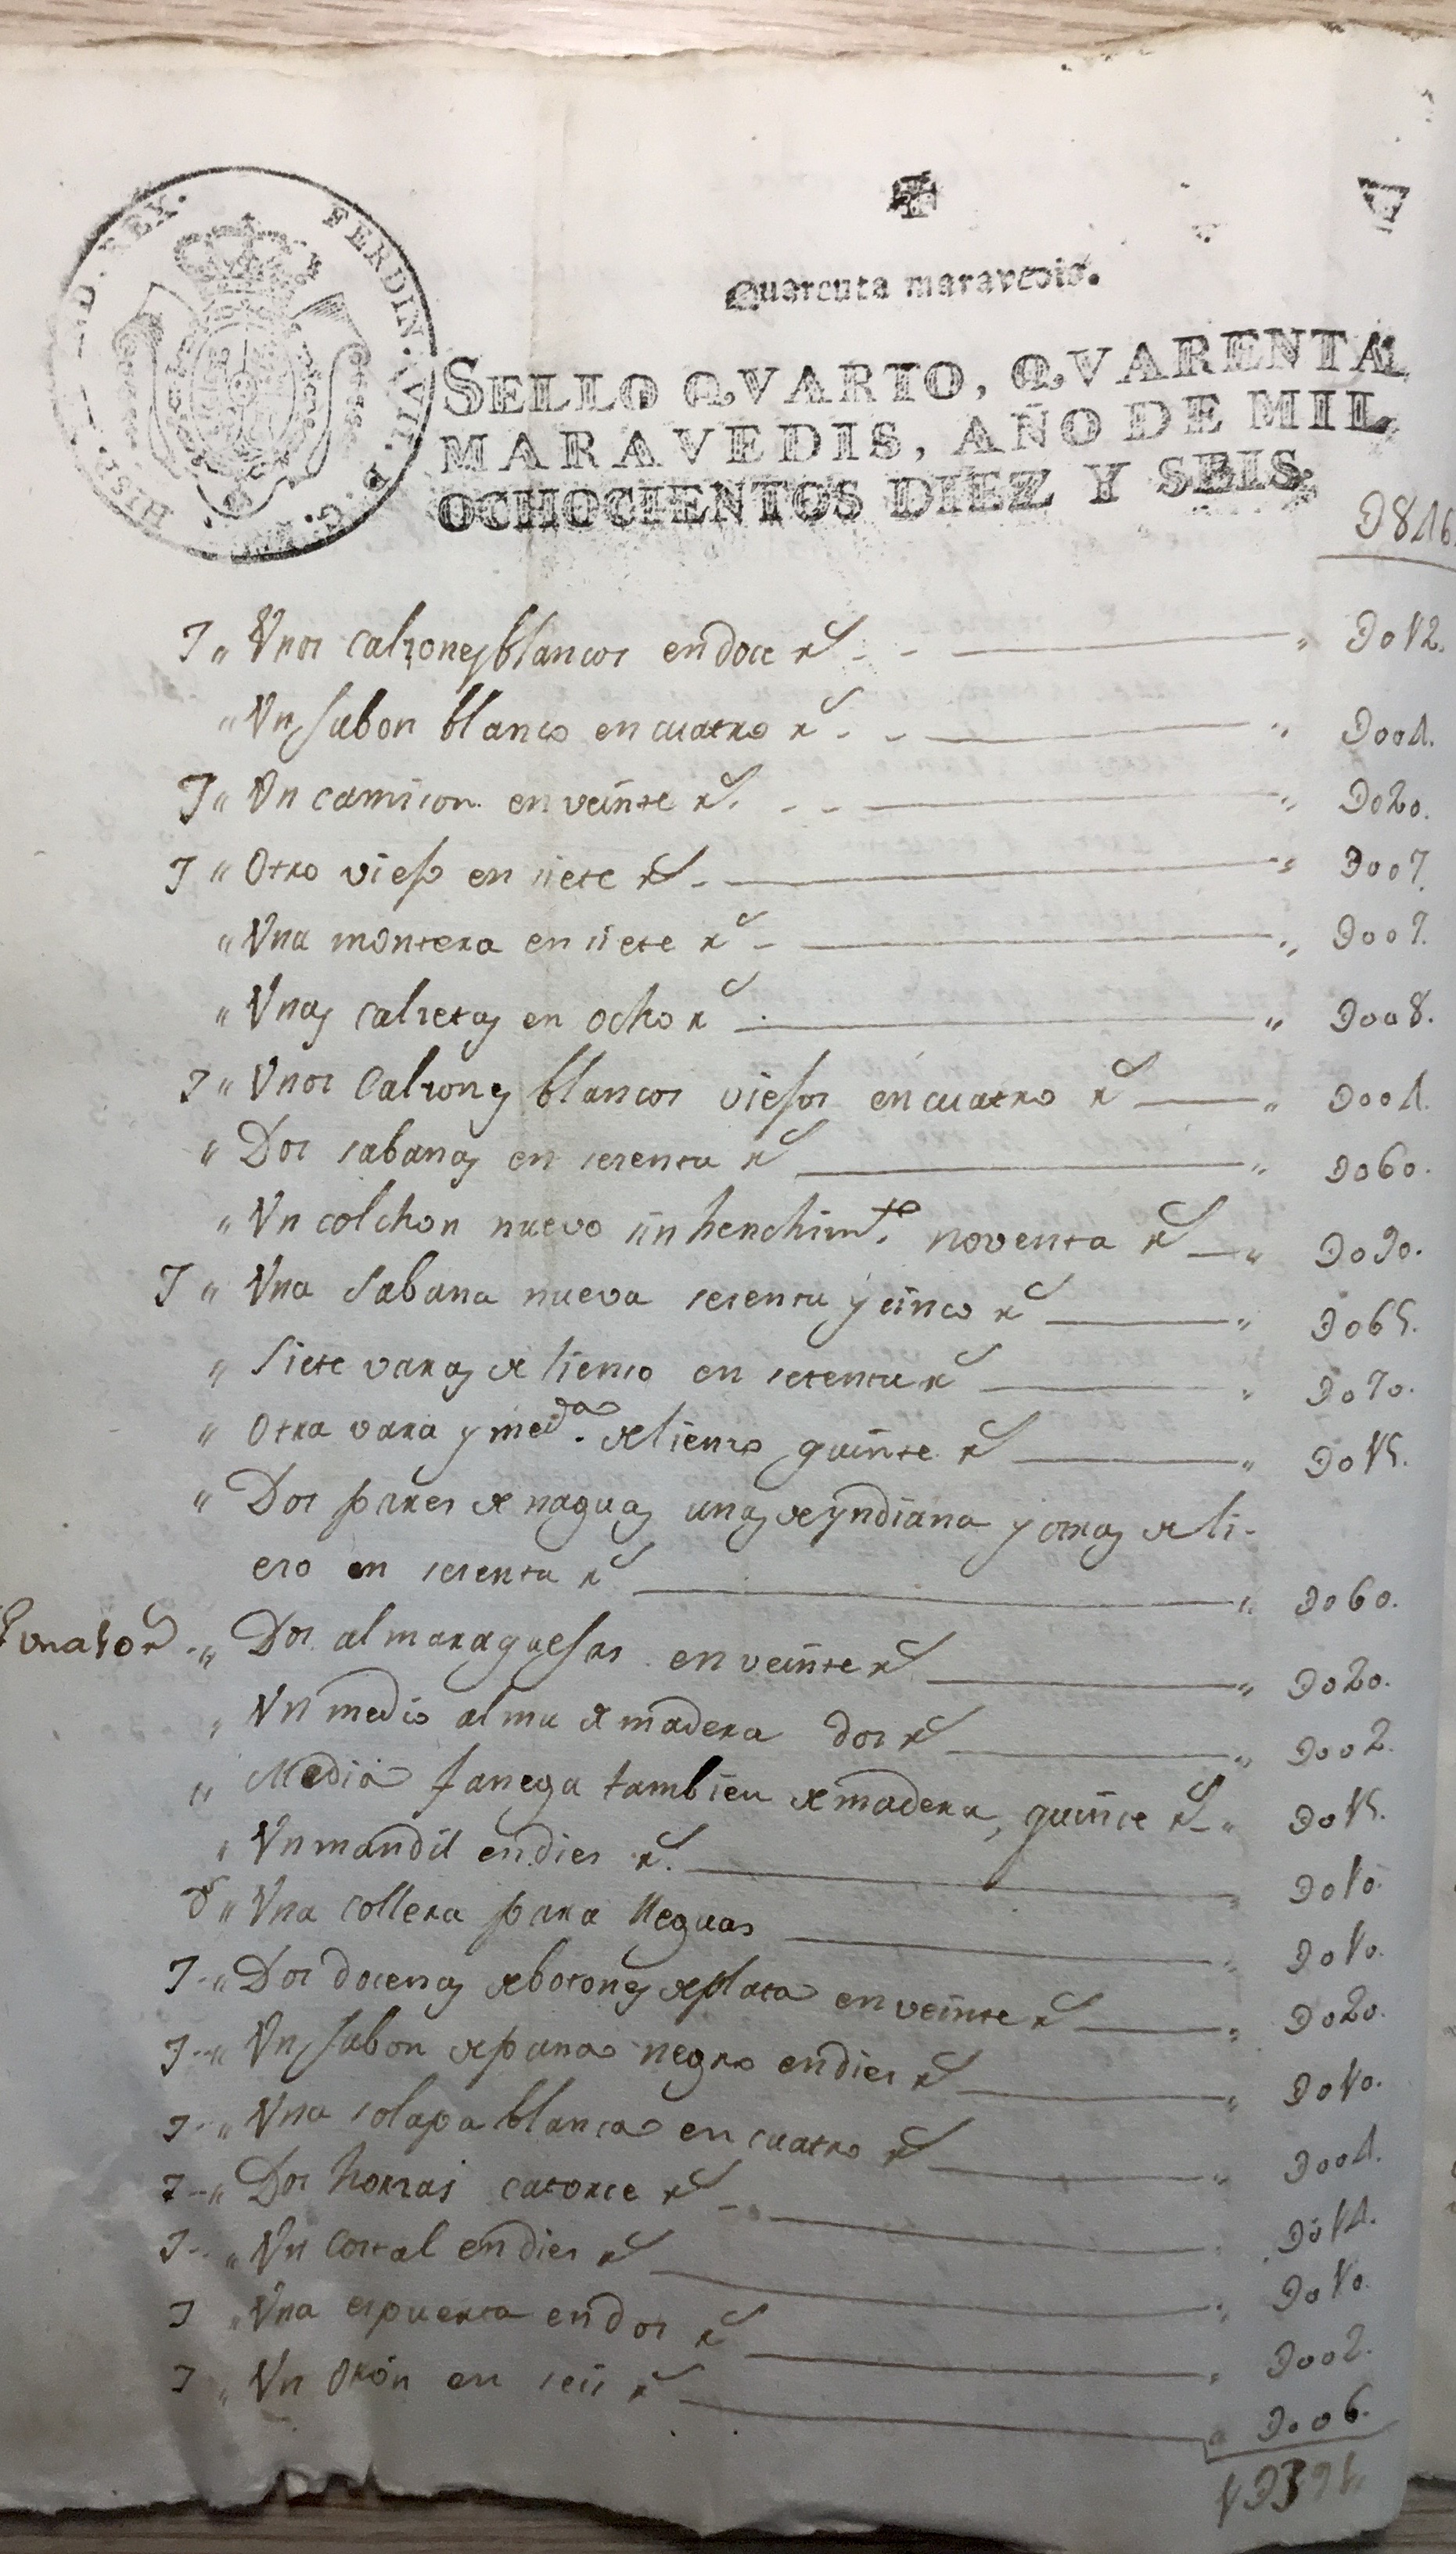 FERDIN. VII. D. G. HISP. D. REX.
Quarenta maravedis.
SELLO QVARTO, QVARENTA
MARAVEDIS, AÑO DE MIL
OCHOCIENTOS DIEZ Y SEIS.
D846
J " Vnos calzones blancos en doce rs " D012.
" Vn Jubon blanco en cuatro rs " D004.
J " Vn camison en veinte rs " D020.
J " Otro viejo en siete rs " D007.
" Vna montera en siete rs " D007.
" Vnas calzetas en ocho rs " D008.
J " Vnos Calzones blancos viejos en cuatro rs " D004.
" Dos sabanas en sesenta rs " D060.
" Vn colchon nuevo sin henchimto. noventa rs " D090.
J " Vna Sabana nueva sesenta y cinco rs " D065.
" Siete varas de lienso en setenta rs " D070.
" Otra vara y meda. de lienzo quinse rs " D015.
" Dos pares de naguas unas de yndiana y otras de li-
ero en sesenta rs " D060.
" Dos almaraguesas en veinte rs " D020.
" Vn medio almu de madera dos rs " D002.
" Media fanega tambien de madera, quince rs " D015.
" Vn mandil en dies rs. " D010.
" Vna collera para lleguas " D010.
J " Dos docenas de botones de plata en veinte rs " D020.
J " Vn Jubon de pana negro en dies rs " D010.
J " Vna solapa blanca en cuatro rs " D004.
J " Dos horzas catorce rs " D014.
J " Vn costal en dies rs " D010.
J " Vna espuerta en dos rs " D002.
J " Vn Orón en seis rs " D006.
1D391